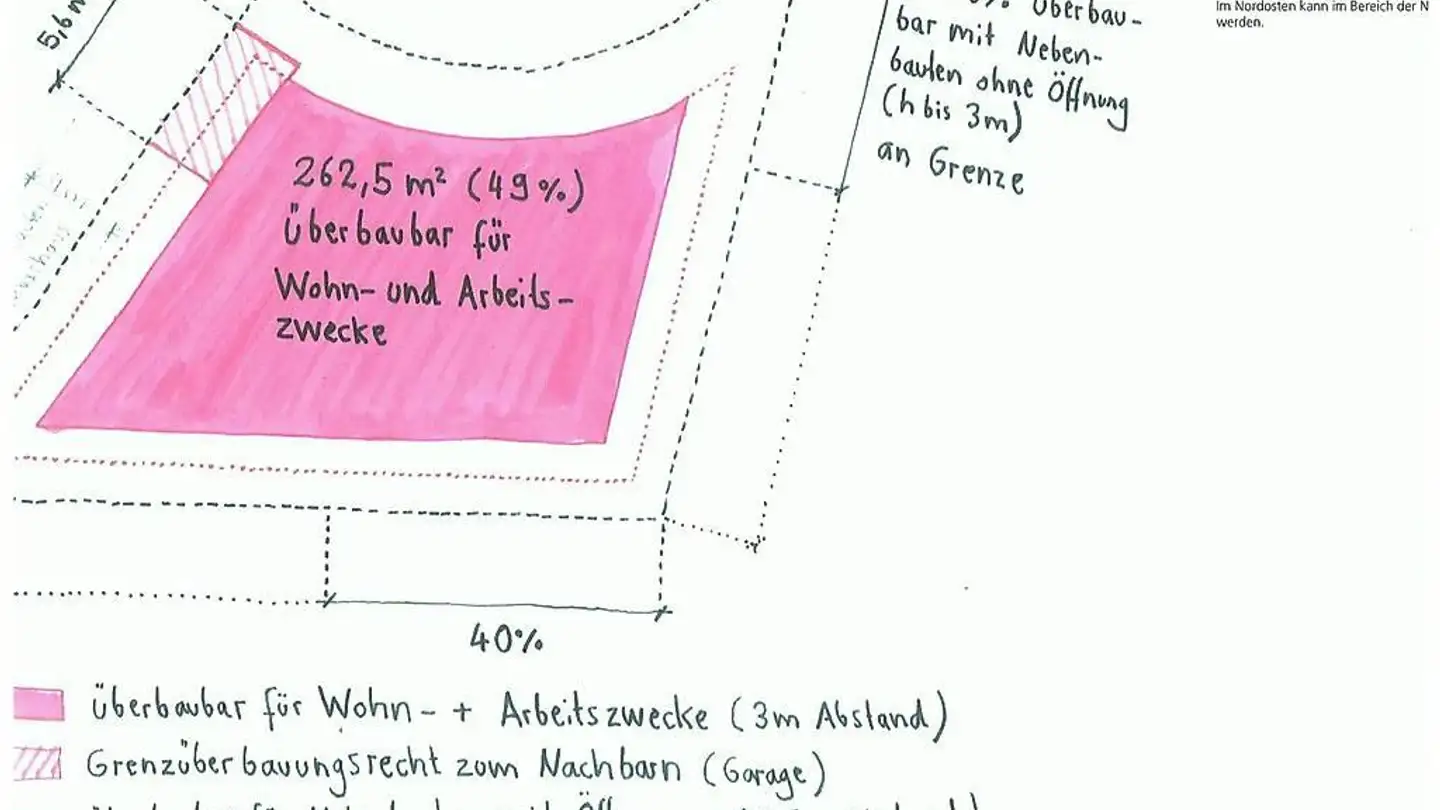 5,6m
% Überbau-
bar mit Neben-
bauten ohne Öffnung
(h bis 3m)
an Grenze
Im Nordosten kann im Bereich der N
werden.
262,5 m² (49%)
Überbaubar für
Wohn- und Arbeits-
zwecke
40%
überbaubar für Wohn- + Arbeitszwecke (3m Abstand)
Grenzüberbauungsrecht zum Nachbarn (Garage)